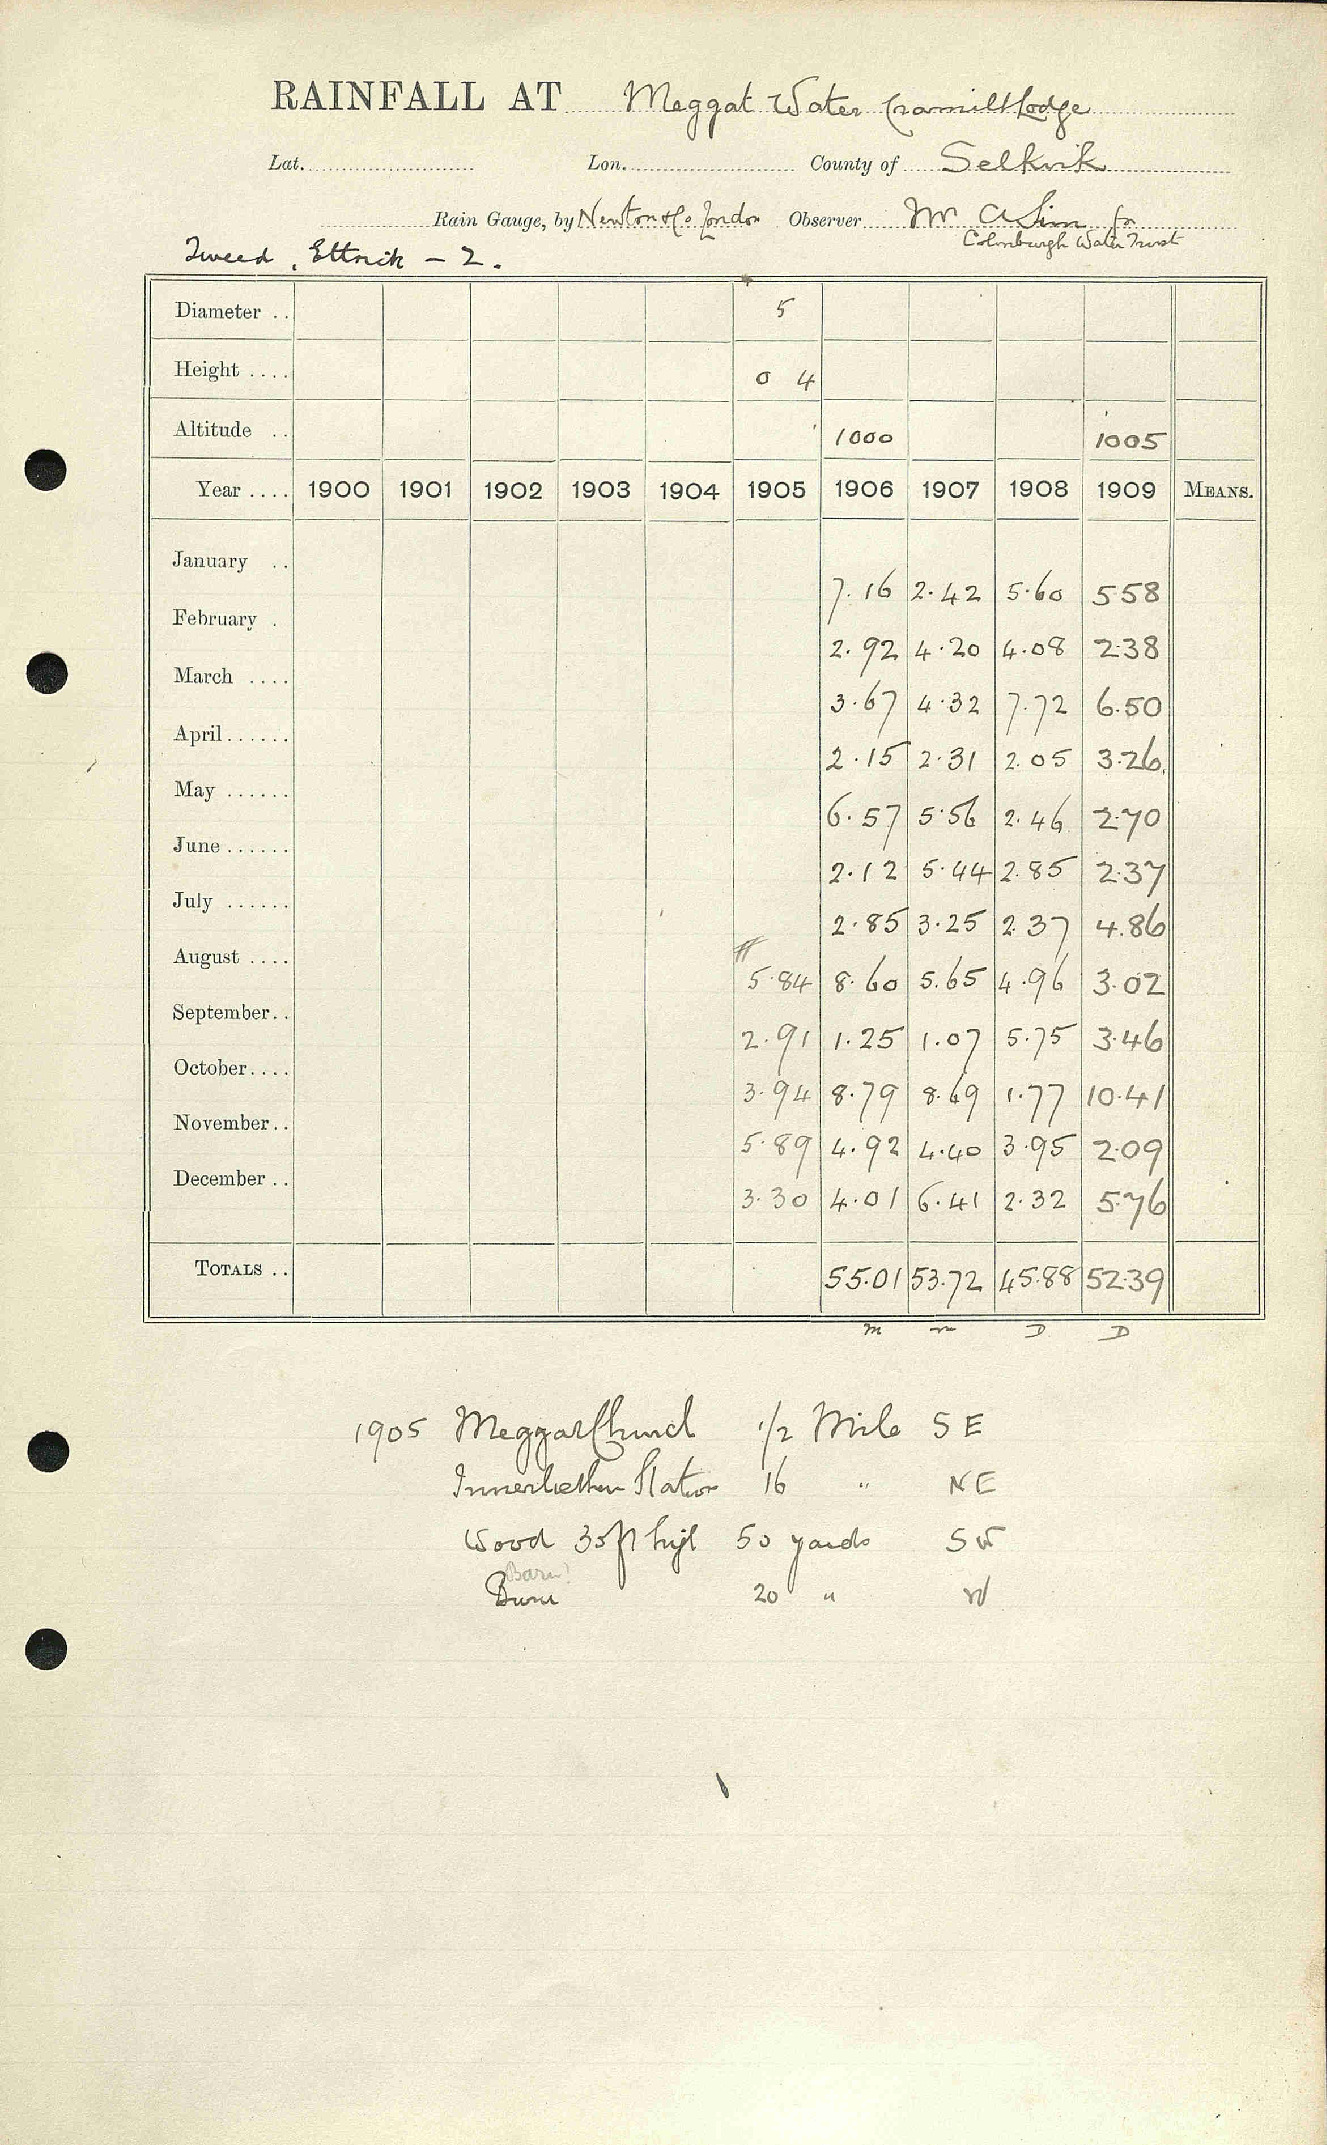 RAINFALL AT Meggat Water Cramilt Lodge
Lat. Lon. County of Selkirk
Rain Gauge, by Newton & Co London Observer Mr A Sim for
Edinburgh Water Trust
Tweed, Ettrick - 2.
Diameter .. 5
Height .... 0 4
Altitude .. 1000 1005
Year .... 1900 1901 1902 1903 1904 1905 1906 1907 1908 1909 MEANS.
January .. 7.16 2.42 5.60 5.58
February . 2.92 4.20 4.08 2.38
March .... 3.67 4.32 7.72 6.50
April...... 2.15 2.31 2.05 3.26
May ...... 6.57 5.56 2.46 2.70
June ...... 2.12 5.44 2.85 2.37
July ...... 2.85 3.25 2.37 4.86
August .... 5.84 8.60 5.65 4.96 3.02
September.. 2.91 1.25 1.07 5.75 3.46
October.... 3.94 8.79 8.69 1.77 10.41
November.. 5.89 4.92 4.40 3.95 2.09
December .. 3.30 4.01 6.41 2.32 5.76
TOTALS .. 55.01 53.72 45.88 52.39
m m D D
1905 Meggat Church 1/2 Mile S E
Innerleithen Station 16 " N E
Wood 35 ft high 50 yards S W
Barn?
Burn 20 " W